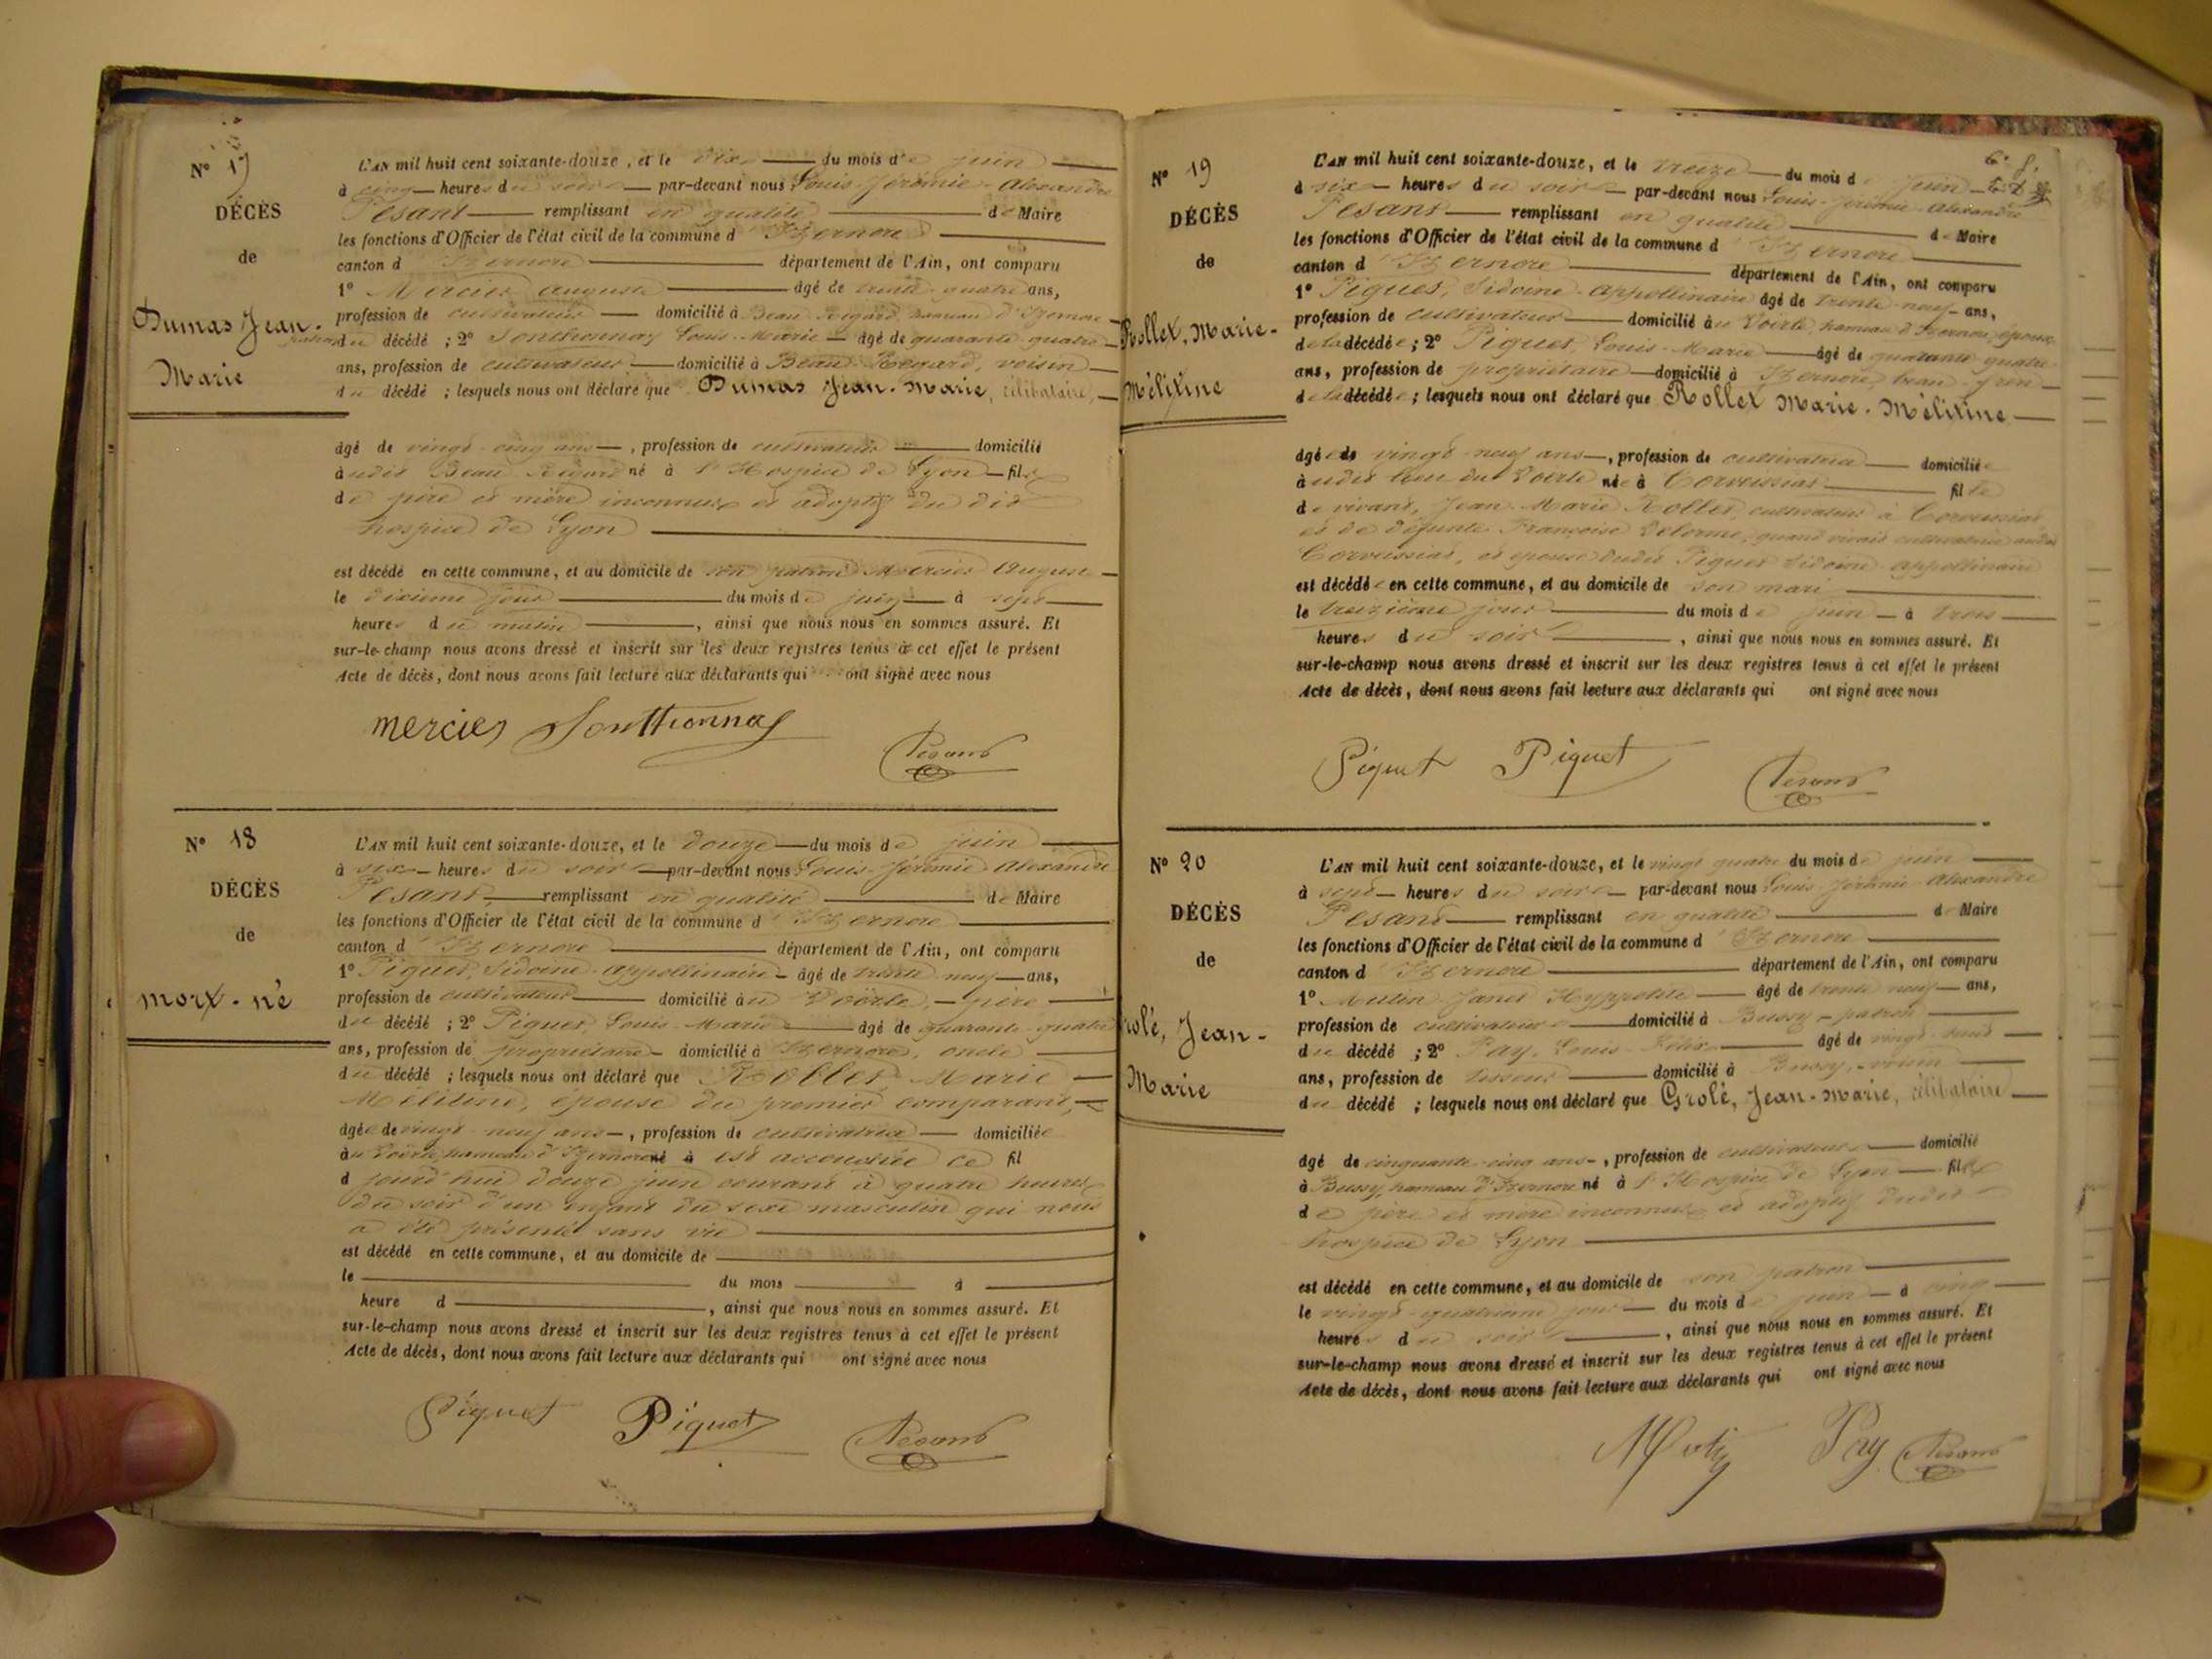 N° 17
DÉCÈS
de
Dumas Jean-
Marie
L'AN mil huit cent soixante-douze, et le dix du mois de juin
à cinq heures du soir par-devant nous Louis-Jérémie-Alexandre
Pesant remplissant en qualité de Maire
les fonctions d'Officier de l'état civil de la commune d'Izernore
canton d'Izernore département de l'Ain, ont comparu
1° Mercier Auguste âgé de trente-quatre ans,
profession de cultivateur domicilié à Beau-Régard, hameau d'Izernore
patron du décédé ; 2° Sonthonnax Louis-Marie âgé de quarante-quatre
ans, profession de cultivateur domicilié à Beau-Regard, voisin
du décédé ; lesquels nous ont déclaré que Dumas Jean-Marie, célibataire,
âgé de vingt-cinq ans, profession de cultivateur domicilié
à udit Beau-Régard né à l'Hospice de Lyon fils
de père et mère inconnus et adoptif du dit
hospice de Lyon
est décédé en cette commune, et au domicile de son patron Mercier Auguste
le dixième jour du mois de juin à sept
heures du matin, ainsi que nous nous en sommes assuré. Et
sur-le-champ nous avons dressé et inscrit sur les deux registres tenus à cet effet le présent
Acte de décès, dont nous avons fait lecture aux déclarants qui ont signé avec nous
Mercier Sonthonnax
Pesant
N° 18
DÉCÈS
de
mort-né
L'AN mil huit cent soixante-douze, et le douze du mois de juin
à six heures du soir par-devant nous Louis-Jérémie-Alexandre
Pesant, remplissant en qualité de Maire
les fonctions d'Officier de l'état civil de la commune d'Izernore
canton d'Izernore département de l'Ain, ont comparu
1° Piquet, Sidoine-Appollinaire âgé de trente-neuf ans,
profession de cultivateur domicilié au Voërle, père
du décédé ; 2° Piquet, Louis-Marie âgé de quarante-quatre
ans, profession de propriétaire domicilié à Izernore, oncle
du décédé ; lesquels nous ont déclaré que Rollet Marie
Mélitine, épouse du premier comparant,
âgée de vingt-neuf ans, profession de cultivatrice domiciliée
au Voërle, hameau d'Izernore né à est accouchée ce fil
d jourd'hui douze juin courant à quatre heures
du soir d'un enfant du sexe masculin qui nous
a été présenté sans vie
est décédé en cette commune, et au domicile de
le du mois à
heure d , ainsi que nous nous en sommes assuré. Et
sur-le-champ nous avons dressé et inscrit sur les deux registres tenus à cet effet le présent
Acte de décès, dont nous avons fait lecture aux déclarants qui ont signé avec nous
Piquet Piquet Pesant
N° 19
DÉCÈS
de
Rollet, Marie-
Mélitine
L'AN mil huit cent soixante-douze, et le treize du mois de juin
à six heures du soir par-devant nous Louis-Jérémie-Alexandre
Pesant remplissant en qualité de Maire
les fonctions d'Officier de l'état civil de la commune d'Izernore
canton d'Izernore département de l'Ain, ont comparu
1° Piquet, Sidoine-Appollinaire âgé de trente-neuf ans,
profession de cultivateur domicilié au Voërle, hameau d'Izernore, époux
de la décédée ; 2° Piquet, Louis-Marie âgé de quarante-quatre
ans, profession de propriétaire domicilié à Izernore, beau-frère
de la décédée ; lesquels nous ont déclaré que Rollet Marie-Mélitine
âgée de vingt-neuf ans, profession de cultivatrice domiciliée
à udit lieu du Voërle née à Corveissiat fille
de vivant, Jean-Marie Rollet, cultivateur à Corveissiat
et de défunte Françoise Delorme, quand vivait cultivatrice audit
Corveissiat, et épouse dudit Piquet Sidoine-Appollinaire
est décédée en cette commune, et au domicile de son mari
le treizième jour du mois de juin à trois
heures du soir, ainsi que nous nous en sommes assuré. Et
sur-le-champ nous avons dressé et inscrit sur les deux registres tenus à cet effet le présent
Acte de décès, dont nous avons fait lecture aux déclarants qui ont signé avec nous
Piquet Piquet Pesant
N° 20
DÉCÈS
de
rolé, Jean-
Marie
L'AN mil huit cent soixante-douze, et le vingt-quatre du mois de juin
à sept heures du soir par-devant nous Louis-Jérémie-Alexandre
Pesant remplissant en qualité de Maire
les fonctions d'Officier de l'état civil de la commune d'Izernore
canton d'Izernore département de l'Ain, ont comparu
1° Mutin Janet Hyppolite âgé de trente-neuf ans,
profession de cultivateur domicilié à Bussy, patron
du décédé ; 2° Pay, Louis Félix âgé de vingt-huit
ans, profession de tisseur domicilié à Bussy, voisin
du décédé ; lesquels nous ont déclaré que Grolé, Jean-Marie, célibataire
âgé de cinquante-cinq ans, profession de cultivateur domicilié
à Bussy, hameau d'Izernore né à l'Hospice de Lyon fils
de père et mère inconnus et adoptif dudit
hospice de Lyon
est décédé en cette commune, et au domicile de son patron
le vingt-quatrième jour du mois de juin à cinq
heures du soir, ainsi que nous nous en sommes assuré. Et
sur-le-champ nous avons dressé et inscrit sur les deux registres tenus à cet effet le présent
Acte de décès, dont nous avons fait lecture aux déclarants qui ont signé avec nous
Pay Pesant